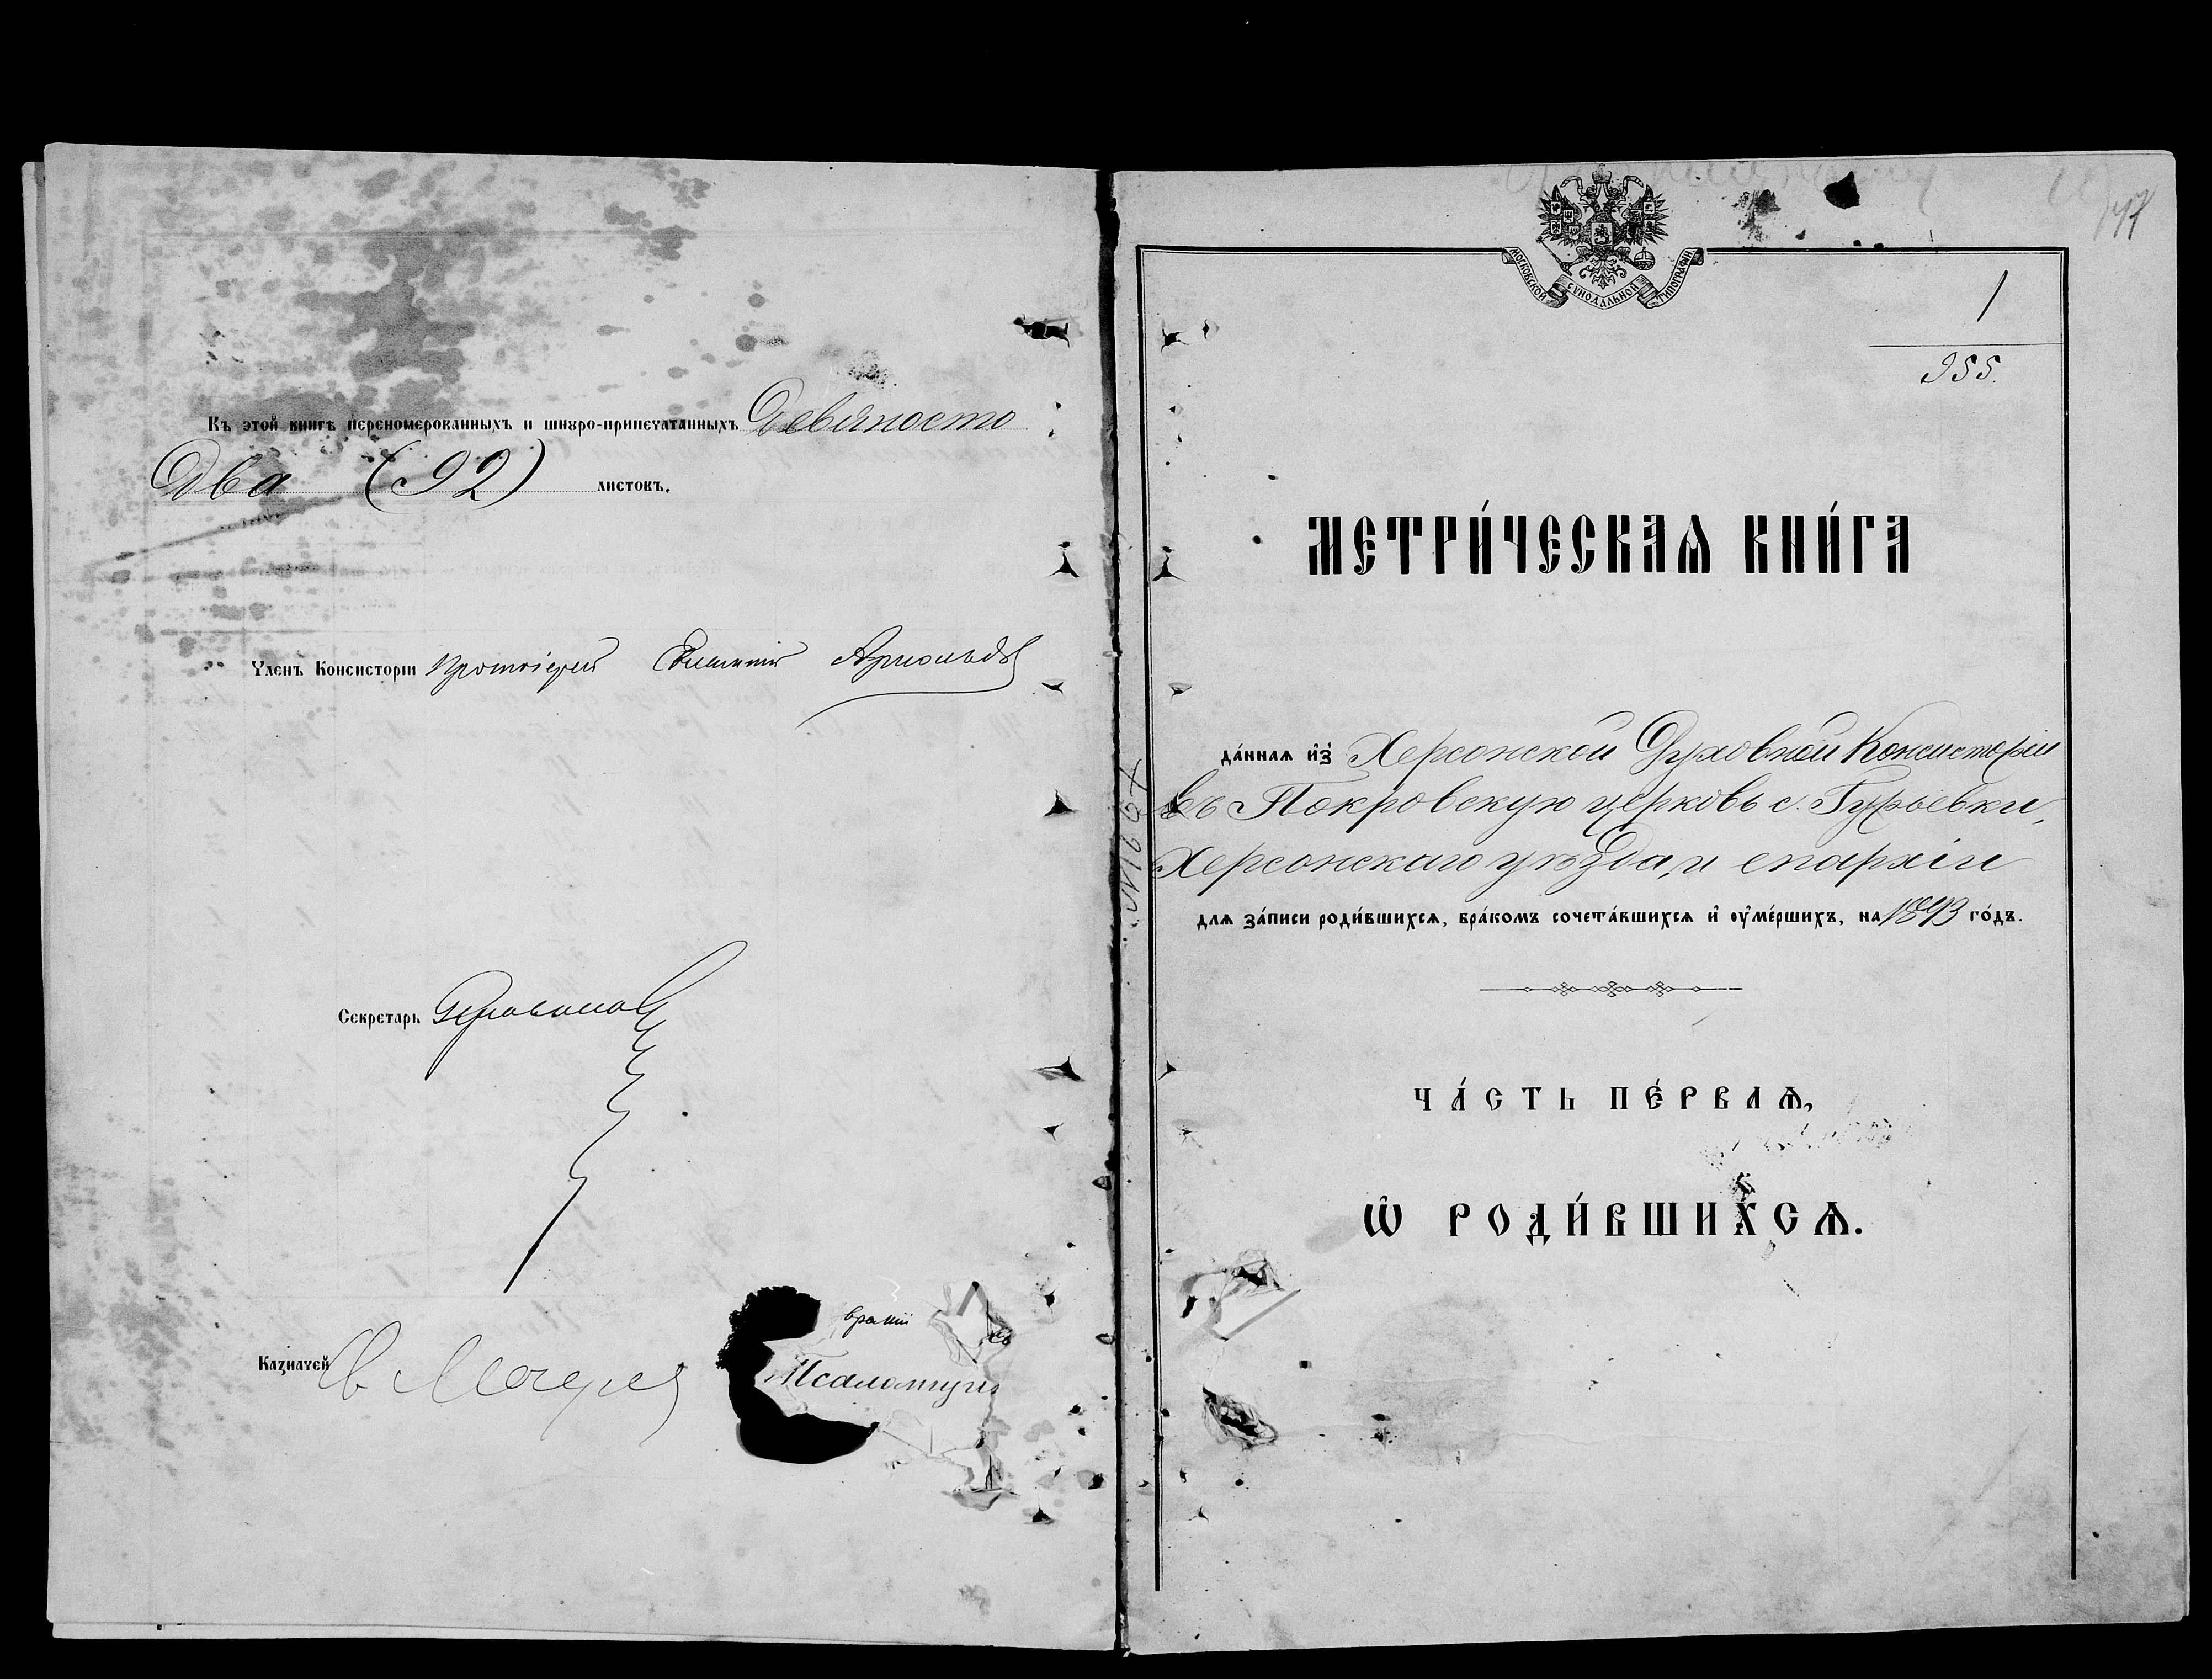 Къ этой книгѣ переномерованныхъ и шнуро-припечатанныхъ Девяносто
Два (92) листовъ.
Членъ Консисторіи Протоіерей Арнольдъ
Секретарь
Казначей
Псаломщи
МОСКОВСКОЙ СѴНОДАЛЬНОЙ ТИПОГРАФІИ
1
955.
МЕТРИ́ЧЕСКАѦ КНИ́ГА
да́нная и҆з̾ Херсонской Духовной Консисторіи
въ Покровскую церковь с. Гурьевки,
Херсонскаго уѣзда, и епархіи
для за́писи роди́вшихся, бра́комъ сочета́вшихся и҆ оу҆ме́ршихъ, на 1893 го́дъ.
ЧА́СТЬ ПЕ́РВАѦ,
Ѡ҆ РОДИ́ВШИХСѦ.